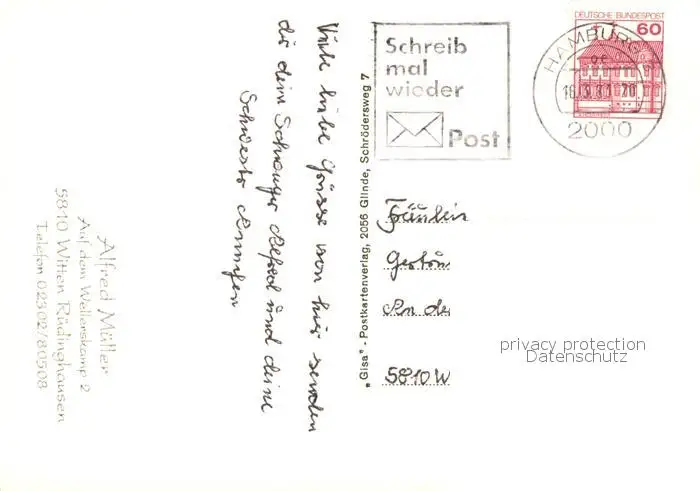 Viele liebe Grüsse von hier senden
dir dein Schwager Alfred und deine
Schwester
Alfred Müller
Auf dem Wellerskamp 2
5810 Witten Rüdinghausen
Telefon 02302/80508
„Gisa"- Postkartenverlag, 2056 Glinde, Schrödersweg 7
Schreib
mal
wieder
Post
DEUTSCHE BUNDESPOST
60
HAMBURG
2000
Fräulein
An der
5810 W
privacy protection
Datenschutz